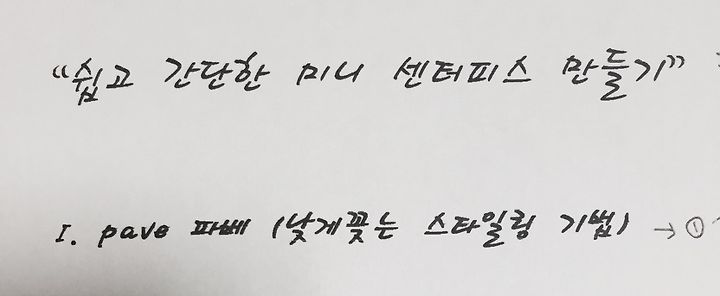 “쉽고 간단한 미니 센터피스 만들기”
I. pave 파베 (낮게꽂는 스타일링 기법) → ①